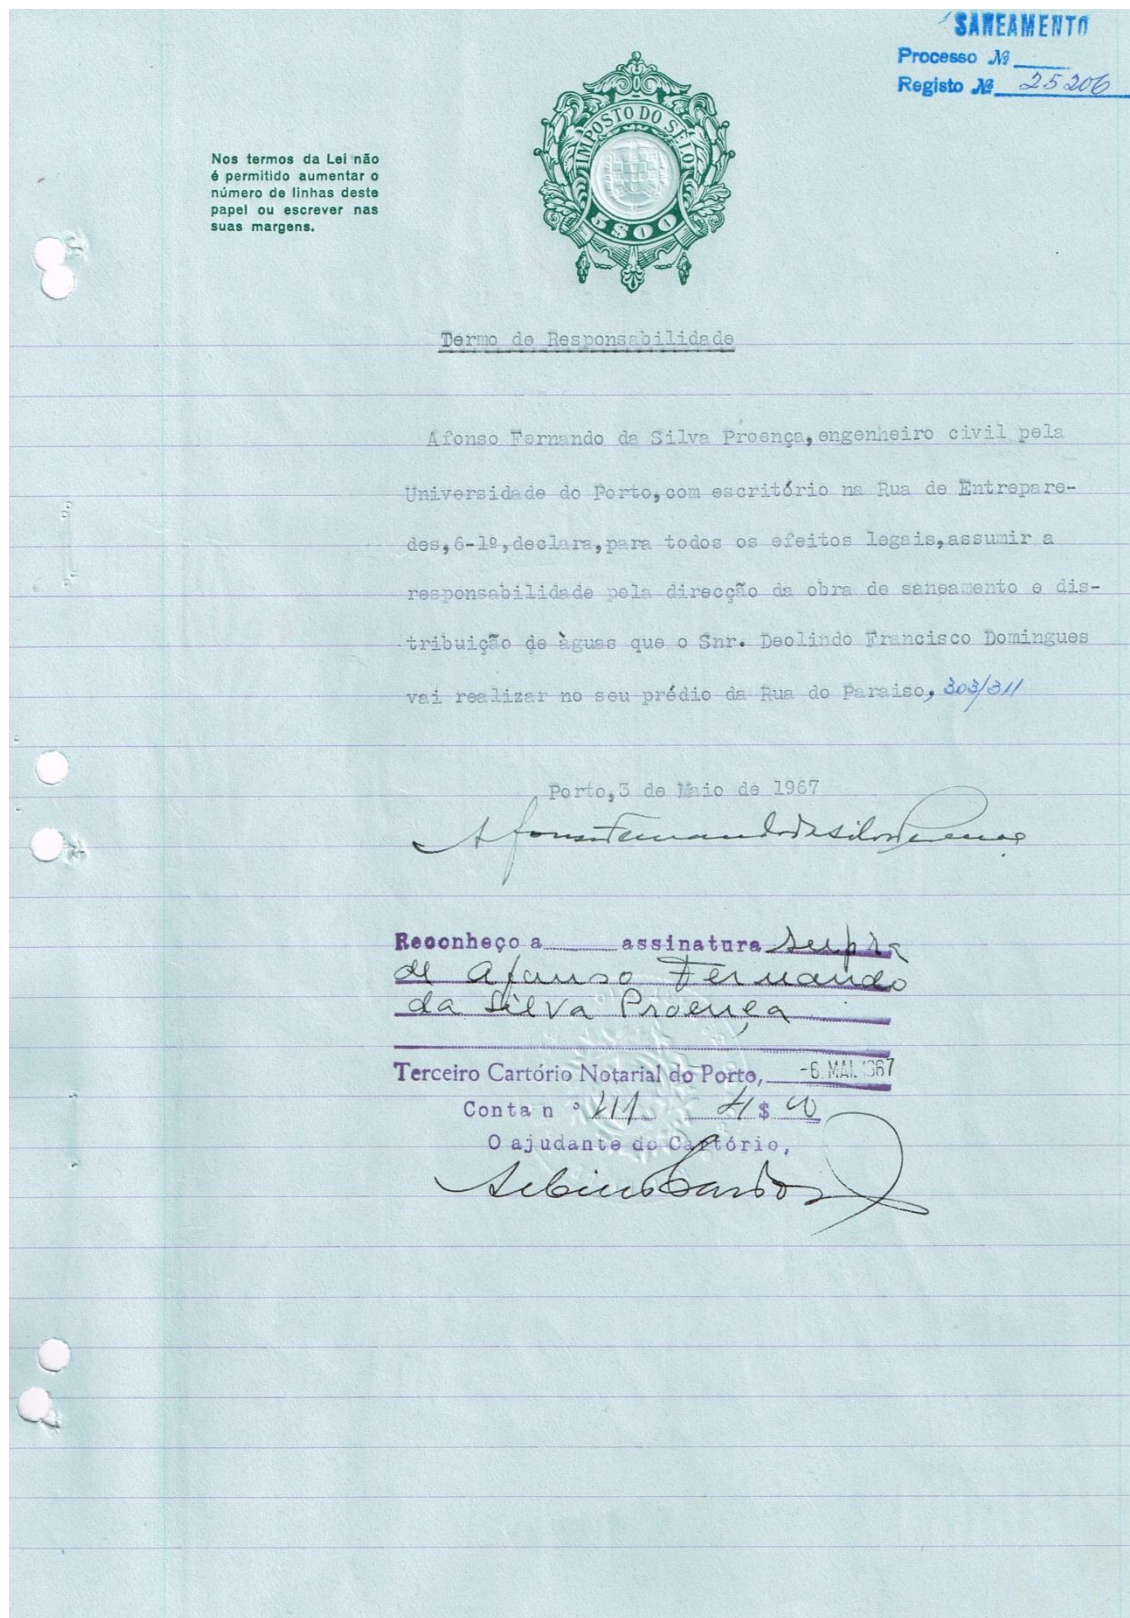 SANEAMENTO
Processo Nº
Registo Nº 25206
IMPOSTO DO SELO
5$00
Nos termos da Lei não
é permitido aumentar o
número de linhas deste
papel ou escrever nas
suas margens.
Termo de Responsabilidade
Afonso Fernando da Silva Proença,engenheiro civil pela
Universidade do Porto,com escritório na Rua de Entrepare-
des,6-1º,declara,para todos os efeitos legais,assumir a
responsabilidade pela direcção da obra de saneamento e dis-
tribuição de àguas que o Snr. Deolindo Francisco Domingues
vai realizar no seu prédio da Rua do Paraiso, 303/311
Porto,3 de Maio de 1967
Afonso Fernando da Silva Proença
Reconheço a assinatura supra
de Afonso Fernando
da Silva Proença
Terceiro Cartório Notarial do Porto, -6. MAI. 1967
Conta nº 4$
O ajudante do Cartório,